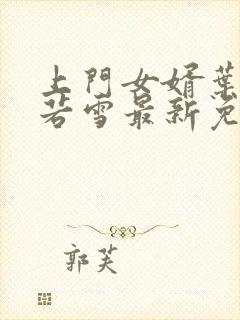 上門女婿葉
若雪最新免
郭芙